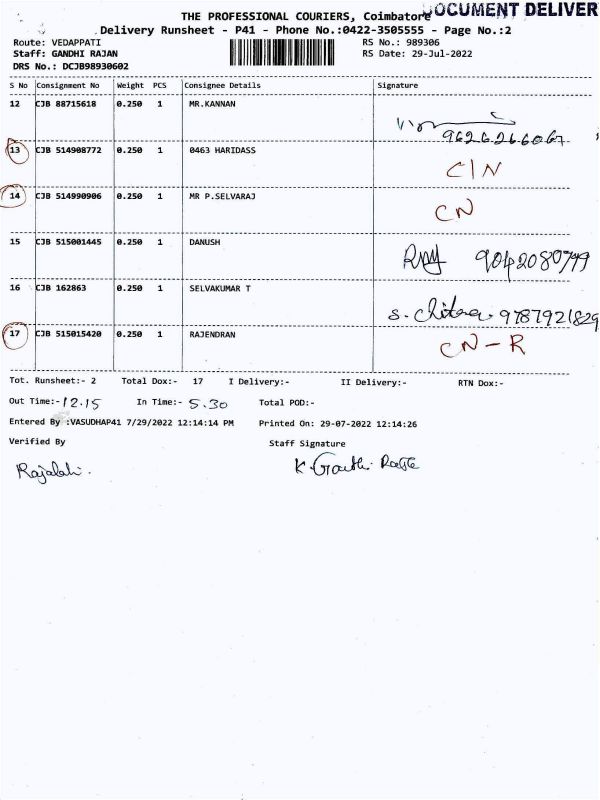 THE PROFESSIONAL COURIERS, Coimbatore
DOCUMENT DELIVER
Delivery Runsheet - P41 - Phone No.:0422-3505555 - Page No.:2
Route: VEDAPPATI RS No.: 989306
Staff: GANDHI RAJAN RS Date: 29-Jul-2022
DRS No.: DCJB98930602
S No Consignment No Weight PCS Consignee Details Signature
12 CJB 88715618 0.250 1 MR.KANNAN
9626266067
13 CJB 514908772 0.250 1 0463 HARIDASS
C/N
14 CJB 514990906 0.250 1 MR P.SELVARAJ
CN
15 CJB 515001445 0.250 1 DANUSH
9042080799
16 CJB 162863 0.250 1 SELVAKUMAR T
S. Chitra 9787921829
17 CJB 515015420 0.250 1 RAJENDRAN
CN - R
Tot. Runsheet:- 2 Total Dox:- 17 I Delivery:- II Delivery:- RTN Dox:-
Out Time:- 12.15 In Time:- 5.30 Total POD:-
Entered By :VASUDHAP41 7/29/2022 12:14:14 PM Printed On: 29-07-2022 12:14:26
Verified By Staff Signature